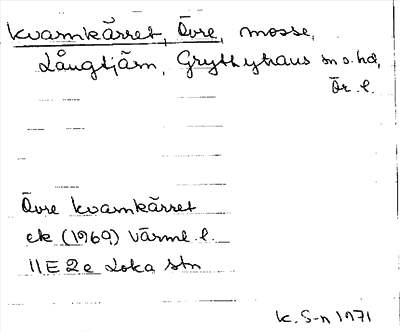 Kvarnkärret, Övre, mosse,
Långtjärn, Grythyttans sn o. hd,
Ör. l.
Övre kvarnkärret
ek (1969) Värml. l.
11E 2e Loka stn
K. S-n 1971